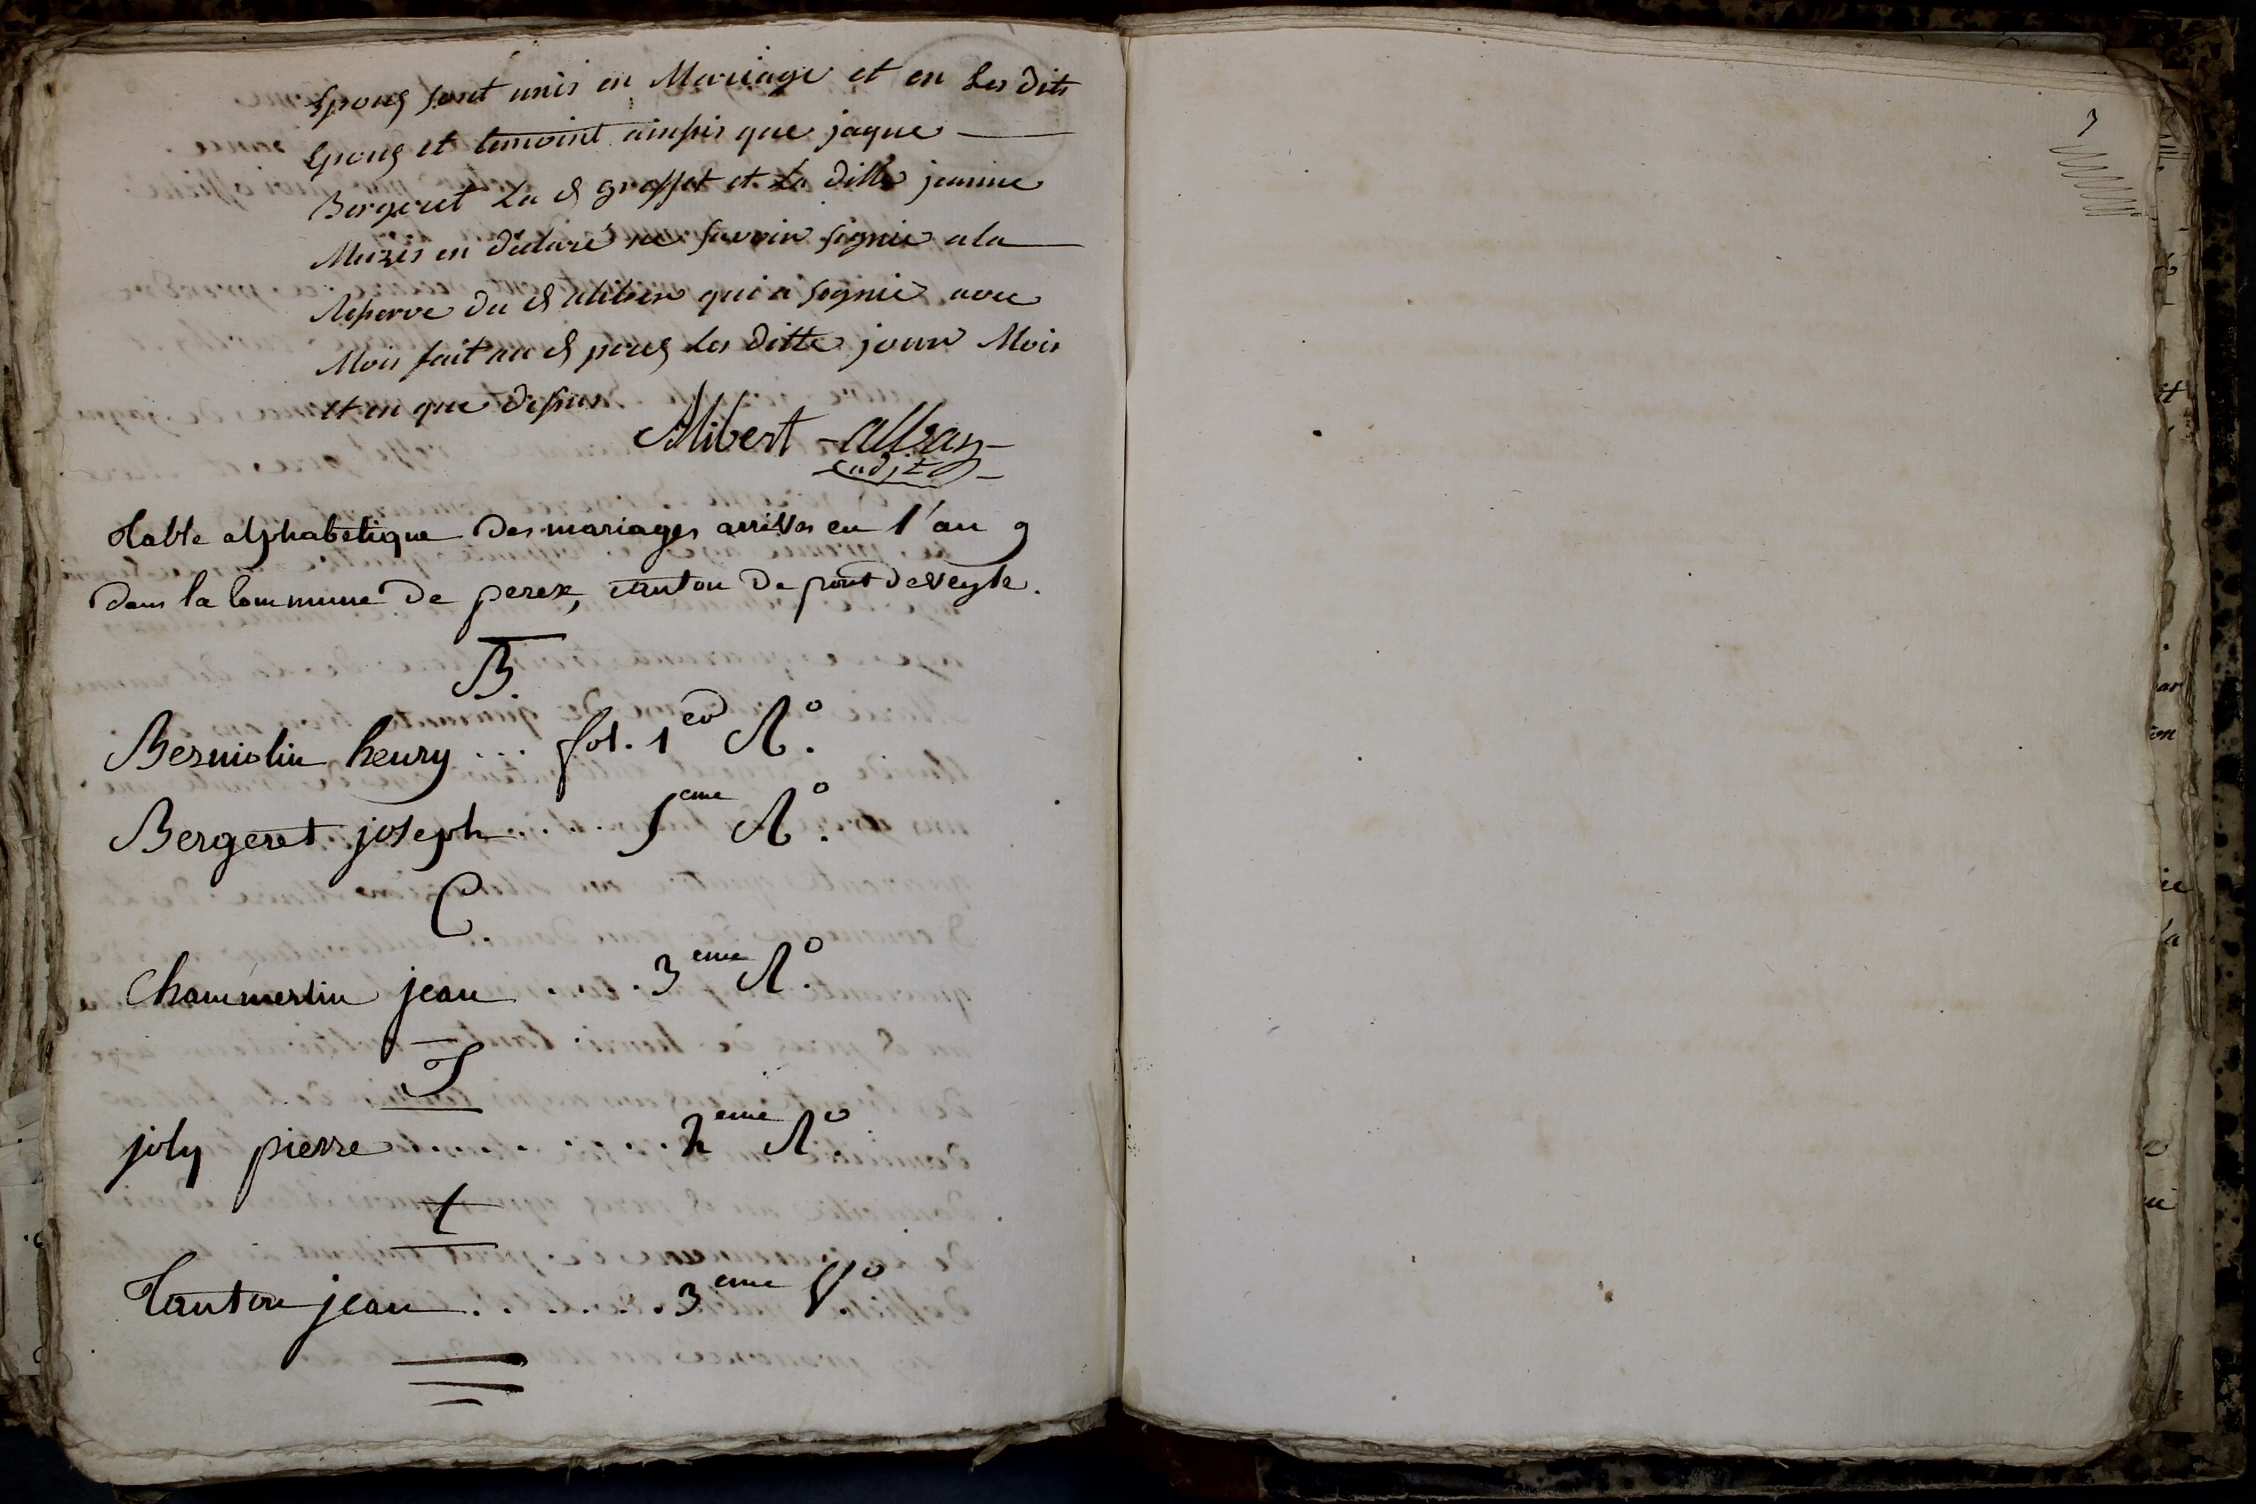 Epoug sont unis en Mariage et en Les dits
Epoug et temoint ainssis que jaque
Bergeret La & groffet et La ditte jeanne
Muzis en declaré ne savoir signie a la
Reserve du & aliber qui a signie avec
Mois fait au & pereg Les ditte jour Mois
et en que dessus
Alibert alban
adjt
Table alphabetique des mariages arrivés en l'an 9
dans la Commune de perex, canton de pont de veyle.
B.
Berniolin henry ... fol. 1er Ro.
Bergeret joseph .... 5eme Ro.
C.
Chammerlin jean .... 3eme Ro.
J
joly pierre ....... 2eme Ro.
t
Tanton jean ....... 3eme Vo.
7